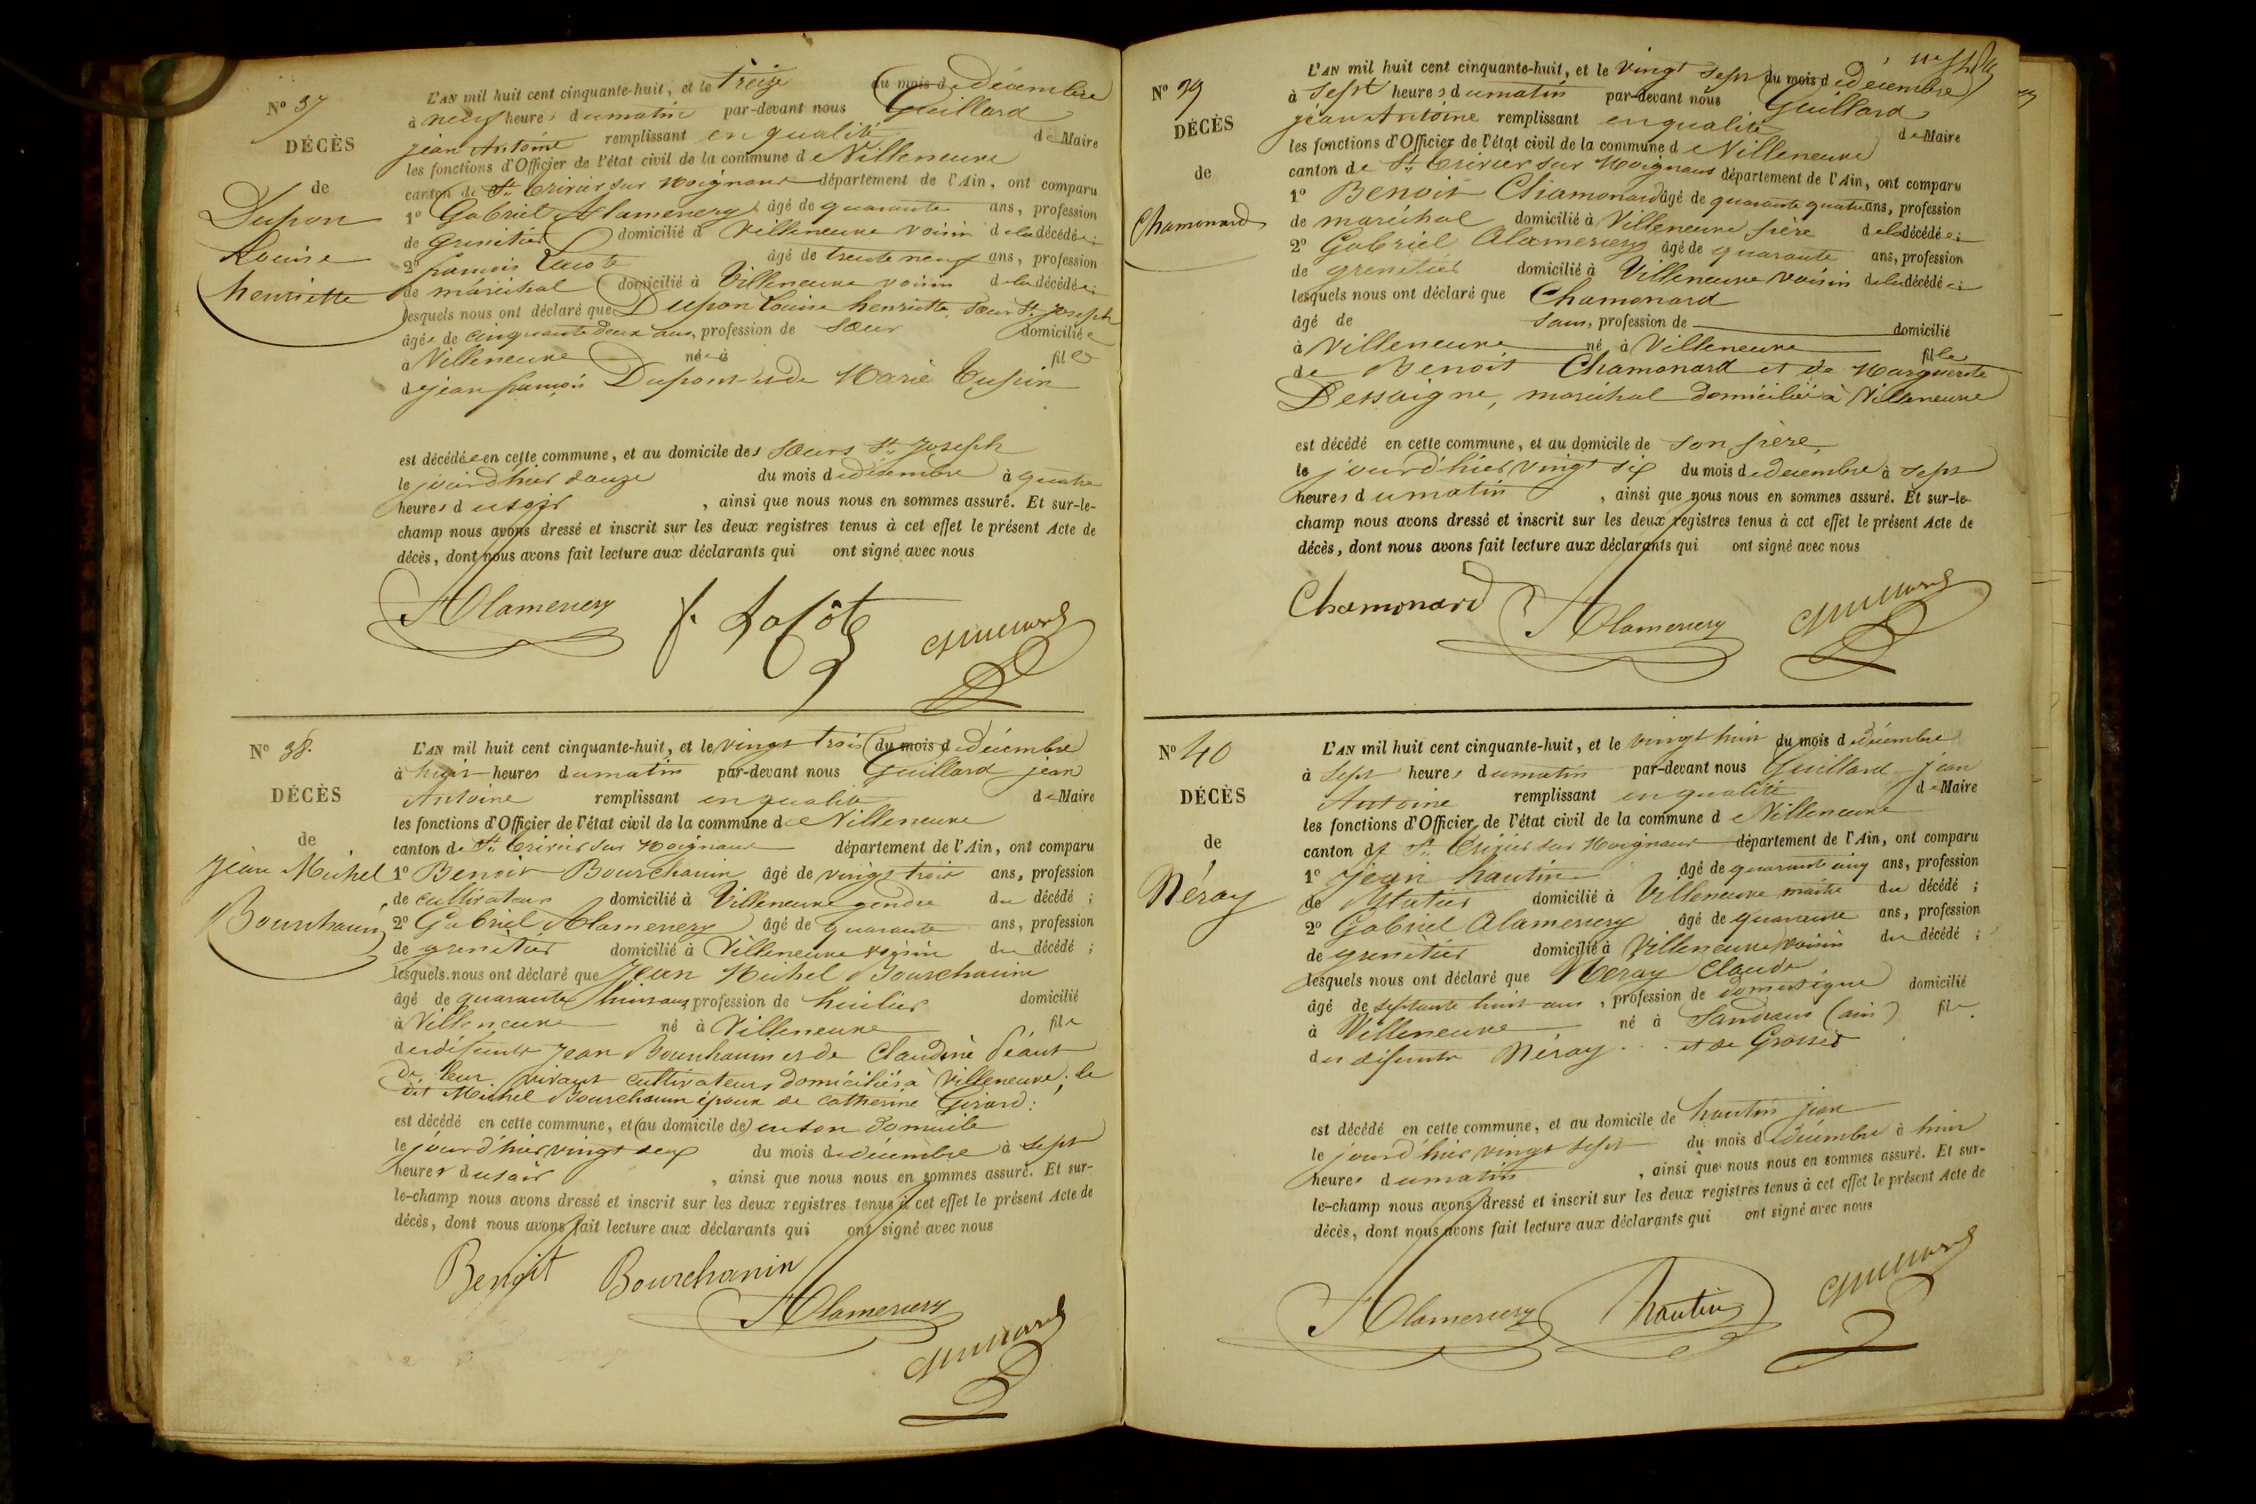 N° 37
DÉCÈS
de
Dupon
Louise
henriette
L'AN mil huit cent cinquante-huit, et le treize du mois de décembre
à neuf heures du matin par-devant nous Guillard
jean Antoine remplissant en qualité de Maire
les fonctions d'Officier de l'état civil de la commune de Villeneuve
canton de St. Trivier sur Moignans département de l'Ain, ont comparu
1° Gabriel Alamercery âgé de quarante ans, profession
de grenetier domicilié à Villeneuve voisin de la décédée;
2° françois Lacote âgé de trente neuf ans, profession
de maréchal domicilié à Villeneuve voisin de la décédée;
lesquels nous ont déclaré que Dupon Louise henriette, sœur St. Joseph
âgée de cinquante deux ans, profession de sœur domiciliée
à Villeneuve née à fille
de jean françois Dupont et de Marie
est décédée en cette commune, et au domicile des sœurs St. Joseph
le jourd'hier douze du mois de décembre à quatre
heures du soir , ainsi que nous nous en sommes assuré. Et sur-le-
champ nous avons dressé et inscrit sur les deux registres tenus à cet effet le présent Acte de
décès, dont nous avons fait lecture aux déclarants qui ont signé avec nous
Alamercery f. Lacôte Guillard
N° 38.
DÉCÈS
de
Jean Michel
Bourchanin
L'AN mil huit cent cinquante-huit, et le vingt trois du mois de décembre
à huit heures du matin par-devant nous Guillard jean
Antoine remplissant en qualité de Maire
les fonctions d'Officier de l'état civil de la commune de Villeneuve
canton de St. Trivier sur Moignans département de l'Ain, ont comparu
1° Benoit Bourchanin âgé de vingt trois ans, profession
de cultivateur domicilié à Villeneuve gendre du décédé ;
2° Gabriel Alamercery âgé de quarante ans, profession
de grenetier domicilié à Villeneuve voisin du décédé ;
lesquels nous ont déclaré que Jean Michel Bourchanin
âgé de quarante huit ans, profession de huilier domicilié
à Villeneuve né à Villeneuve fils
des défunts Jean Bourchanin et de Claudine Péaut
de leur vivant cultivateurs domiciliés à Villeneuve; le
dit Michel Bourchanin époux de Catherine Girard:
est décédé en cette commune, et (au domicile de) en son domicile
le jourd'hier vingt deux du mois de décembre à sept
heures du soir , ainsi que nous nous en sommes assuré. Et sur-
le-champ nous avons dressé et inscrit sur les deux registres tenus à cet effet le présent Acte de
décès, dont nous avons fait lecture aux déclarants qui ont signé avec nous
Benoit Bourchanin
Alamercery
Guillard
N° 39
DÉCÈS
de
Chamonard
L'AN mil huit cent cinquante-huit, et le vingt sept du mois de décembre
à sept heures du matin par-devant nous Guillard
jean Antoine remplissant en qualité de Maire
les fonctions d'Officier de l'état civil de la commune de Villeneuve
canton de St. Trivier sur Moignans département de l'Ain, ont comparu
1° Benoit Chamonard âgé de quarante quatre ans, profession
de maréchal domicilié à Villeneuve père de la décédée;
2° Gabriel Alamercery âgé de quarante ans, profession
de grenetier domicilié à Villeneuve voisin de la décédée;
lesquels nous ont déclaré que Chamonard
âgé de sans, profession de domicilié
à Villeneuve né à Villeneuve fille
de Benoit Chamonard et de Marguerite
Dessaigne, maréchal domicilié à Villeneuve
est décédé en cette commune, et au domicile de son père,
le jourd'hier vingt six du mois de décembre à sept
heures du matin , ainsi que nous nous en sommes assuré. Et sur-le-
champ nous avons dressé et inscrit sur les deux registres tenus à cet effet le présent Acte de
décès, dont nous avons fait lecture aux déclarants qui ont signé avec nous
Chamonard Alamercery Guillard
N° 40
DÉCÈS
de
Néray
L'AN mil huit cent cinquante-huit, et le vingt huit du mois de décembre
à sept heures du matin par-devant nous Guillard jean
Antoine remplissant en qualité de Maire
les fonctions d'Officier de l'état civil de la commune de Villeneuve
canton de St. Trivier sur Moignans département de l'Ain, ont comparu
1° Jean hautin âgé de quarante cinq ans, profession
de domicilié à Villeneuve maître du décédé ;
2° Gabriel Alamercery âgé de quarante ans, profession
de grenetier domicilié à Villeneuve voisin du décédé ;
lesquels nous ont déclaré que Neray Claude
âgé de septante huit ans, profession de domestique domicilié
à Villeneuve né à Sandrans (ain) fils
des défunts Néray . . . et de Grosset
est décédé en cette commune, et au domicile de hautin jean
le jourd'hier vingt sept du mois de décembre à huit
heures du matin , ainsi que nous nous en sommes assuré. Et sur-
le-champ nous avons dressé et inscrit sur les deux registres tenus à cet effet le présent Acte de
décès, dont nous avons fait lecture aux déclarants qui ont signé avec nous
Alamercery hautin Guillard